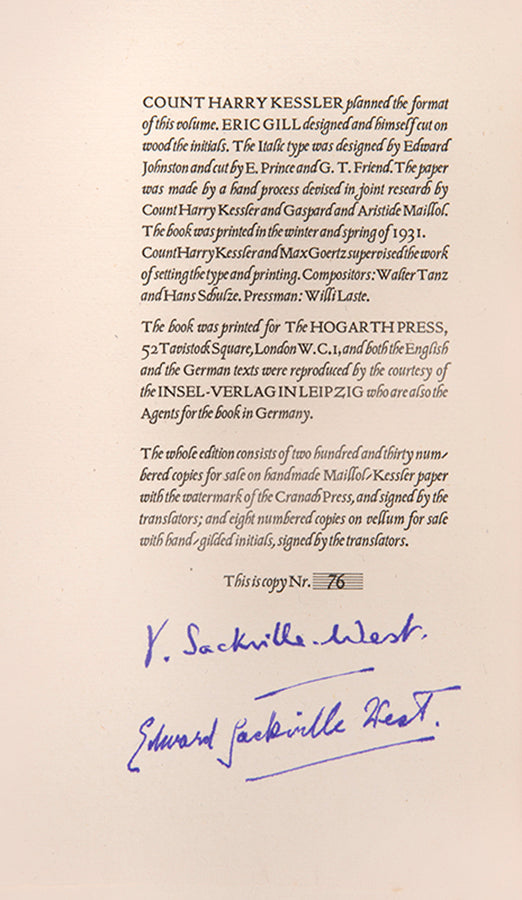 COUNT HARRY KESSLER planned the format
of this volume. ERIC GILL designed and himself cut on
wood the initials. The Italic type was designed by Edward
Johnston and cut by E. Prince and G. T. Friend. The paper
was made by a hand process devised in joint research by
Count Harry Kessler and Gaspard and Aristide Maillol.
The book was printed in the winter and spring of 1931.
Count Harry Kessler and Max Goertz supervised the work
of setting the type and printing. Compositors: Walter Tanz
and Hans Schulze. Pressman: Willi Laste.
The book was printed for The HOGARTH PRESS,
52 Tavistock Square, London W.C.1, and both the English
and the German texts were reproduced by the courtesy of
the INSEL-VERLAG IN LEIPZIG who are also the
Agents for the book in Germany.
The whole edition consists of two hundred and thirty num-
bered copies for sale on handmade Maillol-Kessler paper
with the watermark of the Cranach Press, and signed by the
translators; and eight numbered copies on vellum for sale
with hand-gilded initials, signed by the translators.
This is copy Nr. 76
V. Sackville-West.
Edward Sackville West.